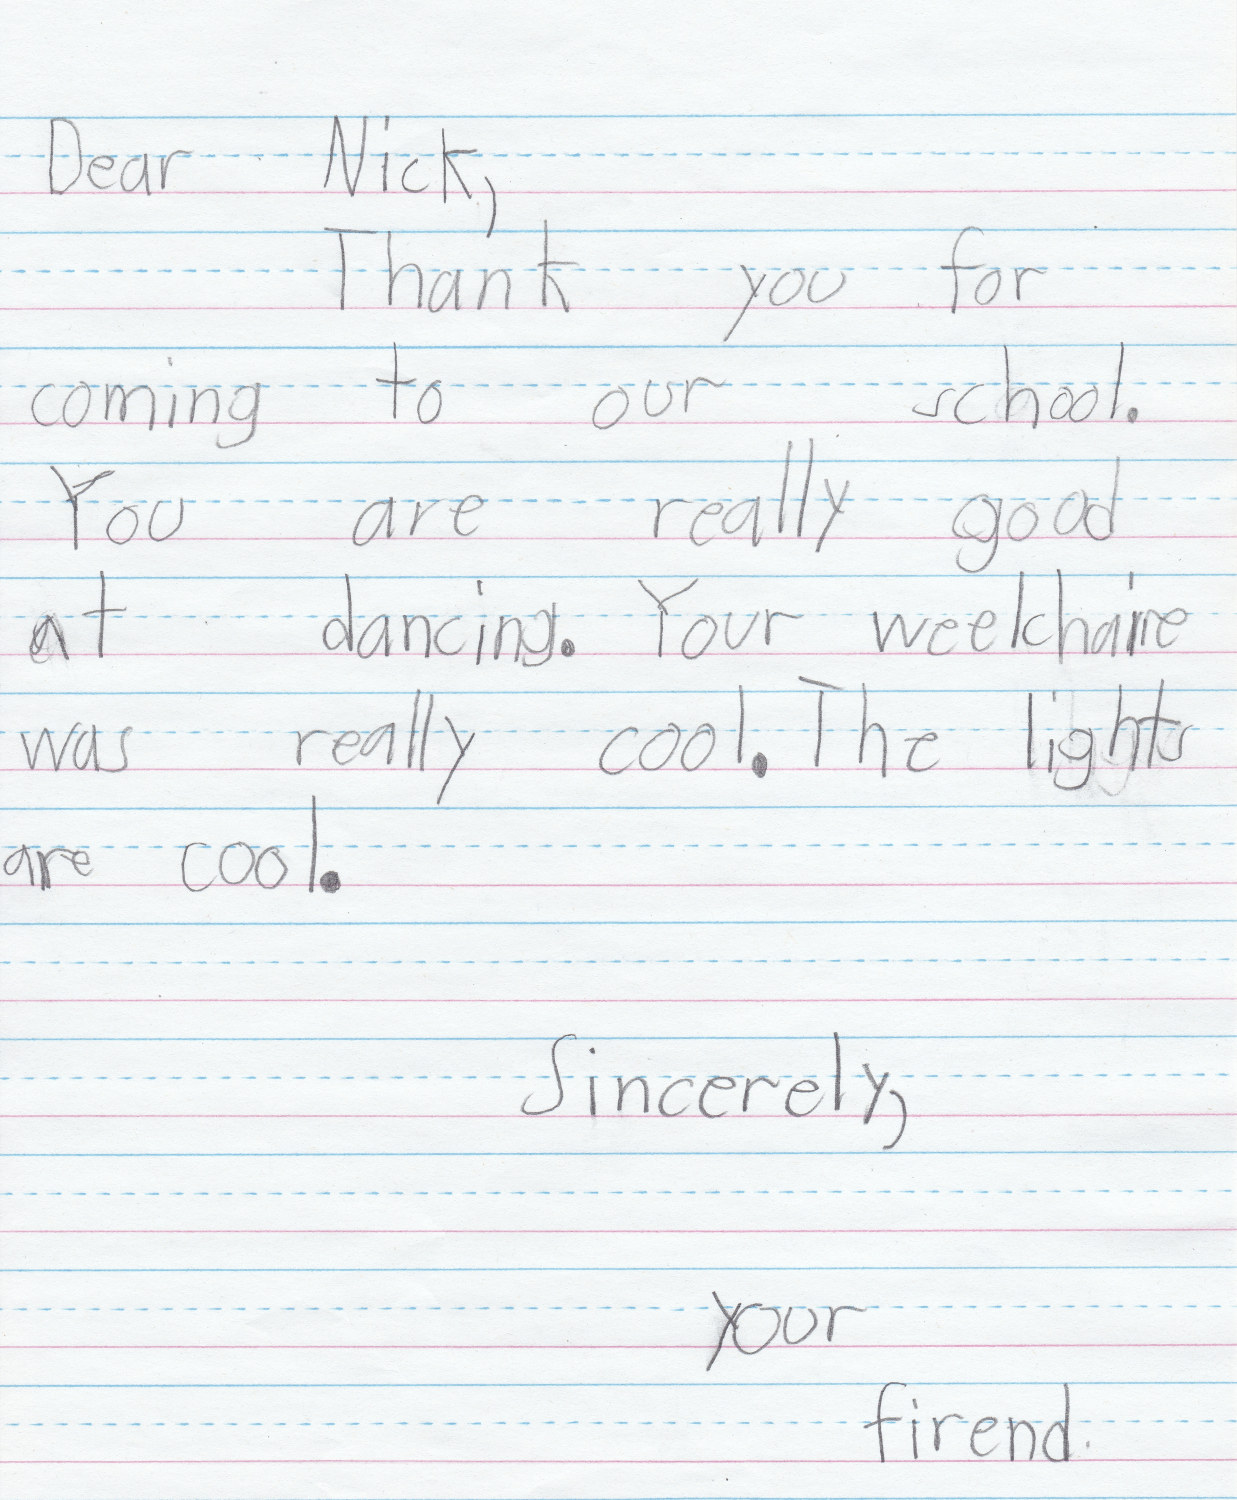 Dear Nick,
Thank you for
coming to our school.
You are really good
at dancing. Your weelchaire
was really cool. The lights
are cool.
Sincerely,
your
firend.